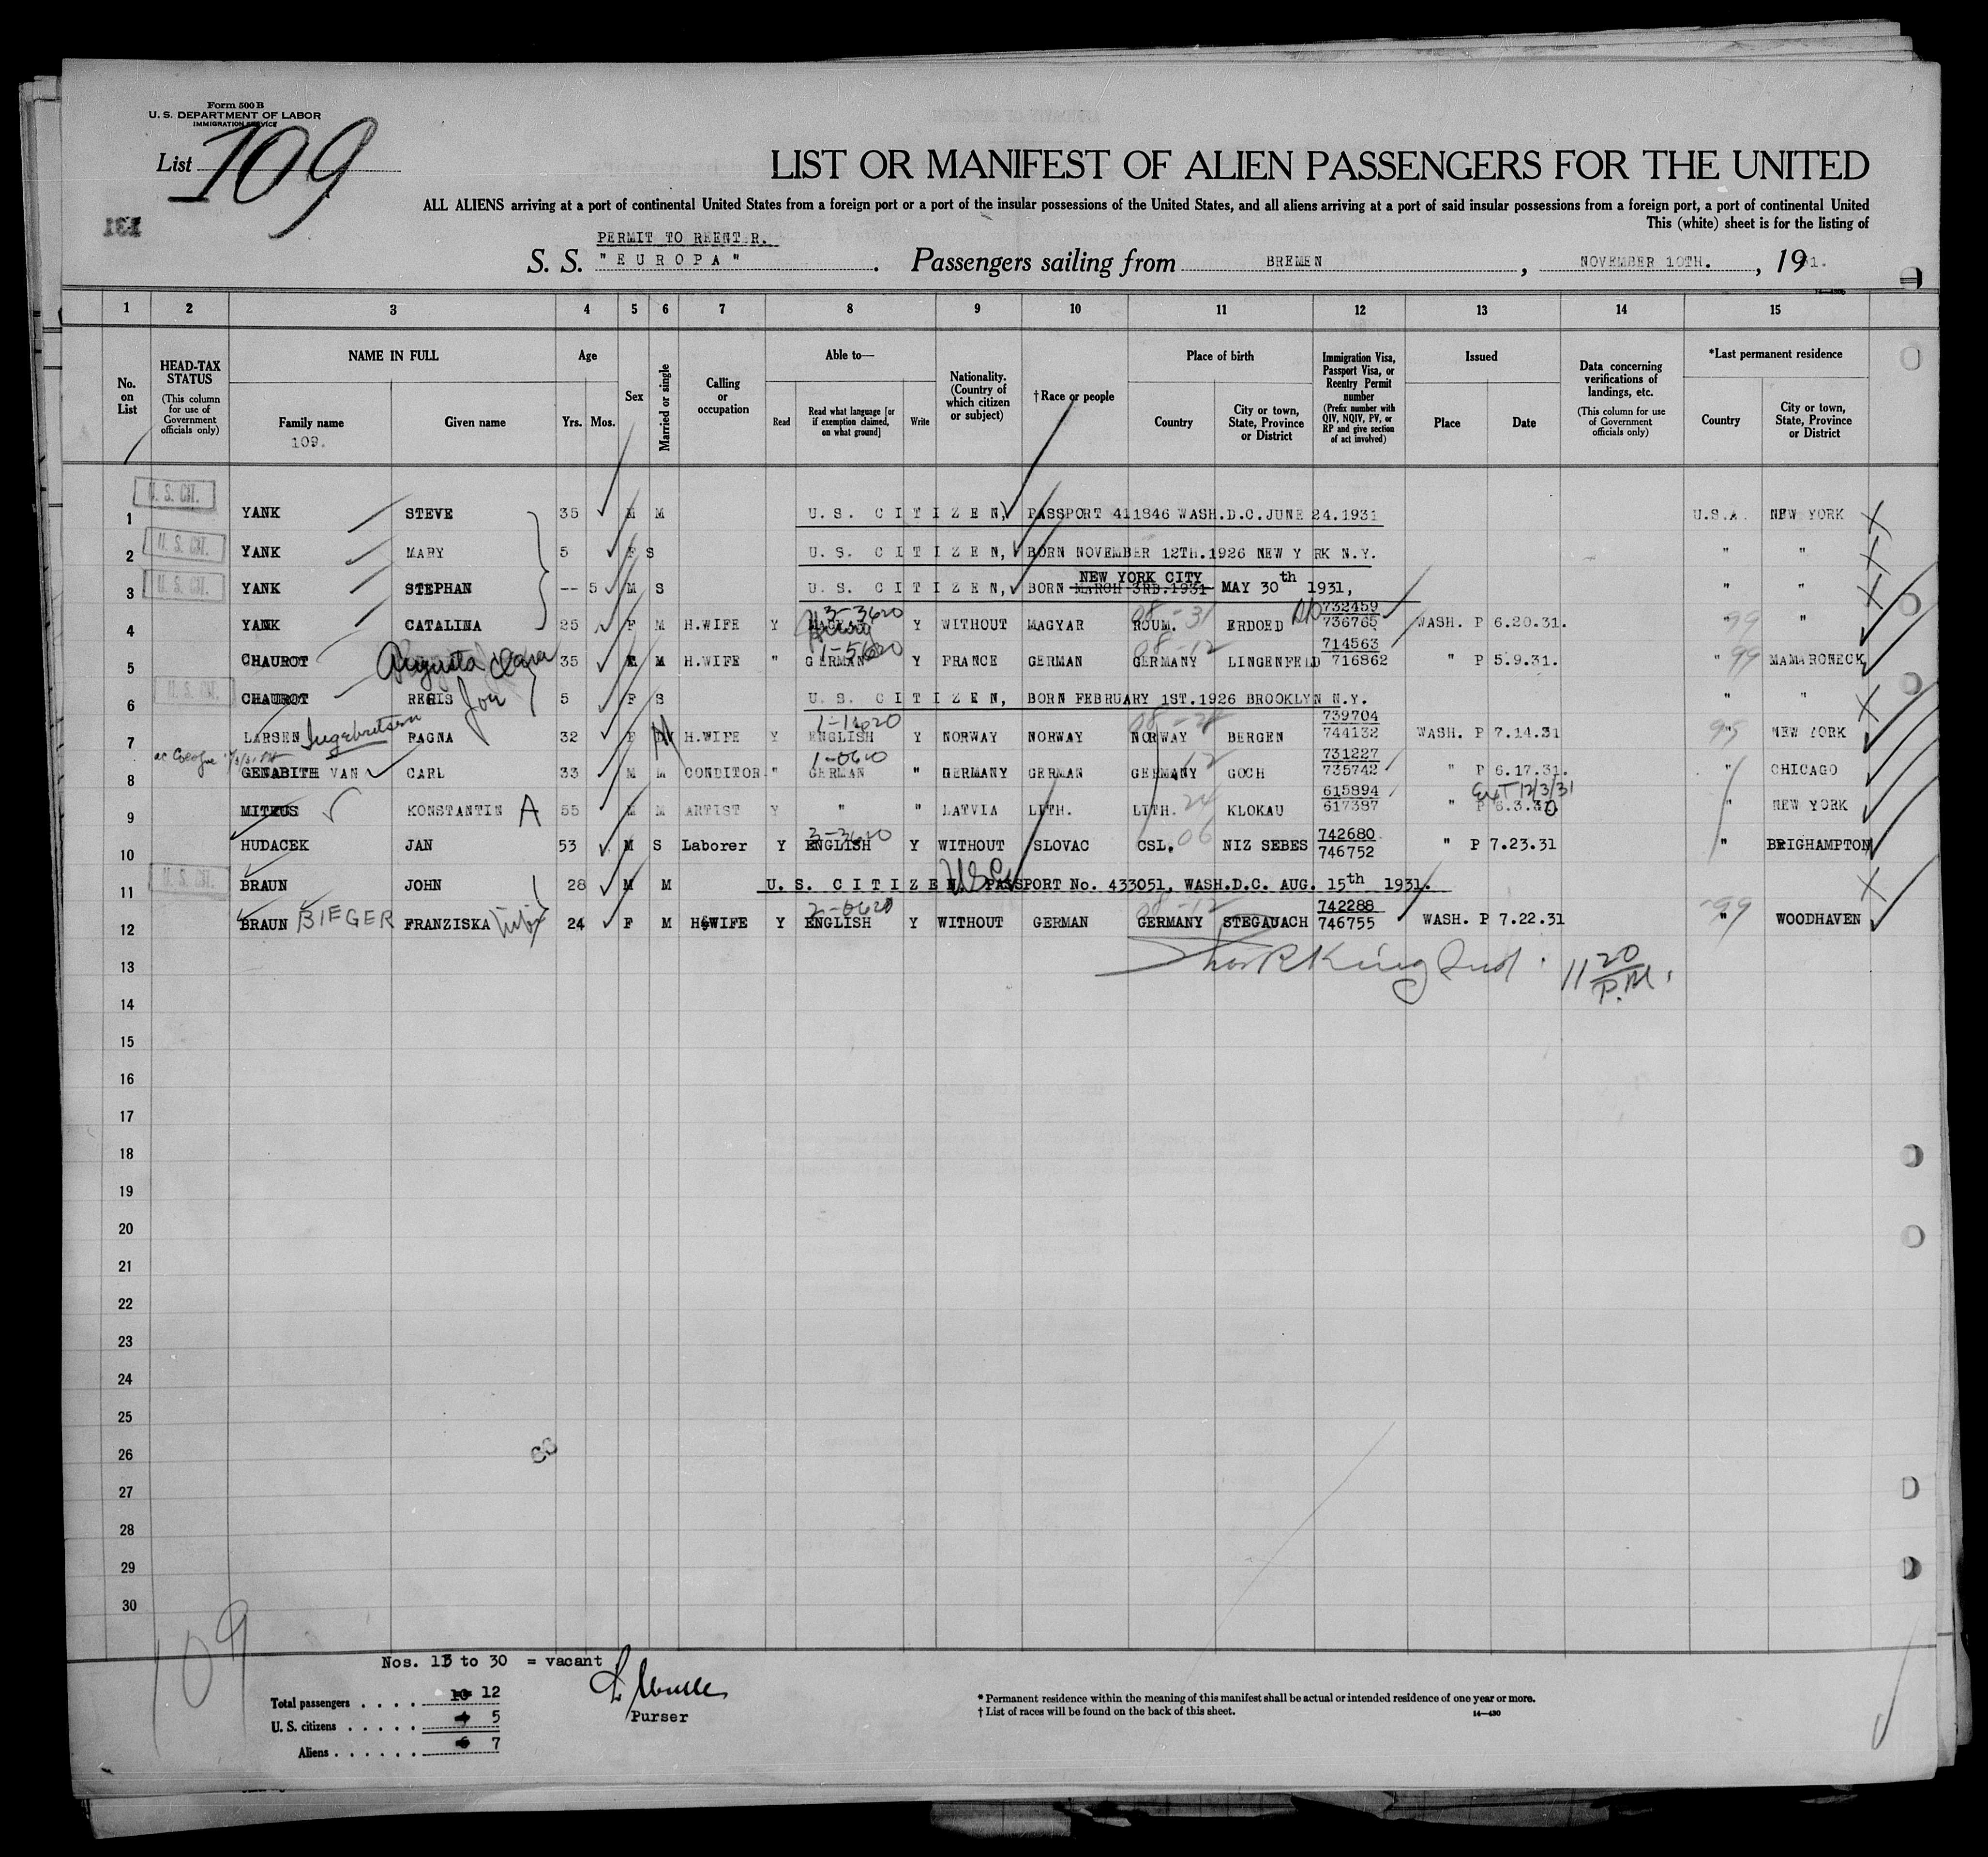 Form 500 B
U. S. DEPARTMENT OF LABOR
IMMIGRATION SERVICE
List 109
131
LIST OR MANIFEST OF ALIEN PASSENGERS FOR THE UNITED
ALL ALIENS arriving at a port of continental United States from a foreign port or a port of the insular possessions of the United States, and all aliens arriving at a port of said insular possessions from a foreign port, a port of continental United
This (white) sheet is for the listing of
PERMIT TO REENTER.
S. S. "EUROPA". Passengers sailing from BREMEN, NOVEMBER 10TH., 1931.
1 2 3 4 5 6 7 8 9 10 11 12 13 14 15
No. on List
HEAD-TAX STATUS (This column for use of Government officials only)
NAME IN FULL
Family name
109.
Given name
Age
Yrs. Mos.
Sex
Married or single
Calling or occupation
Able to—
Read
Read what language [or if exemption claimed, on what ground]
Write
Nationality. (Country of which citizen or subject)
†Race or people
Place of birth
Country
City or town, State, Province or District
Immigration Visa, Passport Visa, or Reentry Permit number (Prefix number with QIV, NQIV, PV, or RP and give section of act involved)
Issued
Place
Date
Data concerning verifications of landings, etc. (This column for use of Government officials only)
*Last permanent residence
Country
City or town, State, Province or District
1 U. S. CIT. YANK STEVE 35 M M U. S. CITIZEN, PASSPORT 411846 WASH.D.C.JUNE 24.1931 U.S.A. NEW YORK
2 U. S. CIT. YANK MARY 5 F S U. S. CITIZEN, BORN NOVEMBER 12TH.1926 NEW Y RK N.Y. " "
NEW YORK CITY
3 U. S. CIT. YANK STEPHAN -- 5 M S U. S. CITIZEN, BORN MARCH 3RD.1931 MAY 30th 1931, " "
3-3620 08-31 732459
4 YANK CATALINA 25 F M H.WIFE Y MAGYAR Y WITHOUT MAGYAR ROUM. ERDOED 736765 WASH. P 6.20.31. " 99 "
1-5620 08-12 714563
5 CHAUROT Augusta Clara 35 F M H.WIFE " GERMAN Y FRANCE GERMAN GERMANY LINGENFELD 716862 " P 5.9.31. " 99 MAMARONECK
6 U. S. CIT. CHAUROT REGIS Joy 5 F S U. S. CITIZEN, BORN FEBRUARY 1ST.1926 BROOKLYN N.Y. " "
Ingebretsen 739704
7 LARSEN RAGNA 32 F M H.WIFE Y ENGLISH Y NORWAY NORWAY NORWAY BERGEN 744132 WASH. P 7.14.31 " NEW YORK
1-0610 12 731227
8 GENABITH VAN CARL 33 M M CONDITOR " GERMAN " GERMANY GERMAN GERMANY GOCH 735742 " P 6.17.31. " CHICAGO
615894 Ext 12/3/31
9 MITKUS KONSTANTIN A 55 M M ARTIST Y " " LATVIA LITH. LITH. 24 KLOKAU 617387 " P 6.3.30 " NEW YORK
06 742680
10 HUDACEK JAN 53 M S Laborer Y ENGLISH Y WITHOUT SLOVAC CSL. NIZ SEBES 746752 " P 7.23.31 " BRIGHAMPTON
11 U. S. CIT. BRAUN JOHN 28 M M U. S. CITIZEN PASSPORT No. 433051, WASH.D.C. AUG. 15th 1931.
2-0620 08-12 742288
12 BRAUN BIEGER FRANZISKA 24 F M H.WIFE Y ENGLISH Y WITHOUT GERMAN GERMANY STEGAUACH 746755 WASH. P 7.22.31 " 99 WOODHAVEN
13 11 20 P.M.
14
15
16
17
18
19
20
21
22
23
24
25
26
27
28
29
30
109
Nos. 13 to 30 = vacant
Total passengers . . . . 10 12
U. S. citizens . . . . . 4 5
Aliens . . . . . . 6 7
Purser
* Permanent residence within the meaning of this manifest shall be actual or intended residence of one year or more.
† List of races will be found on the back of this sheet.
14—430